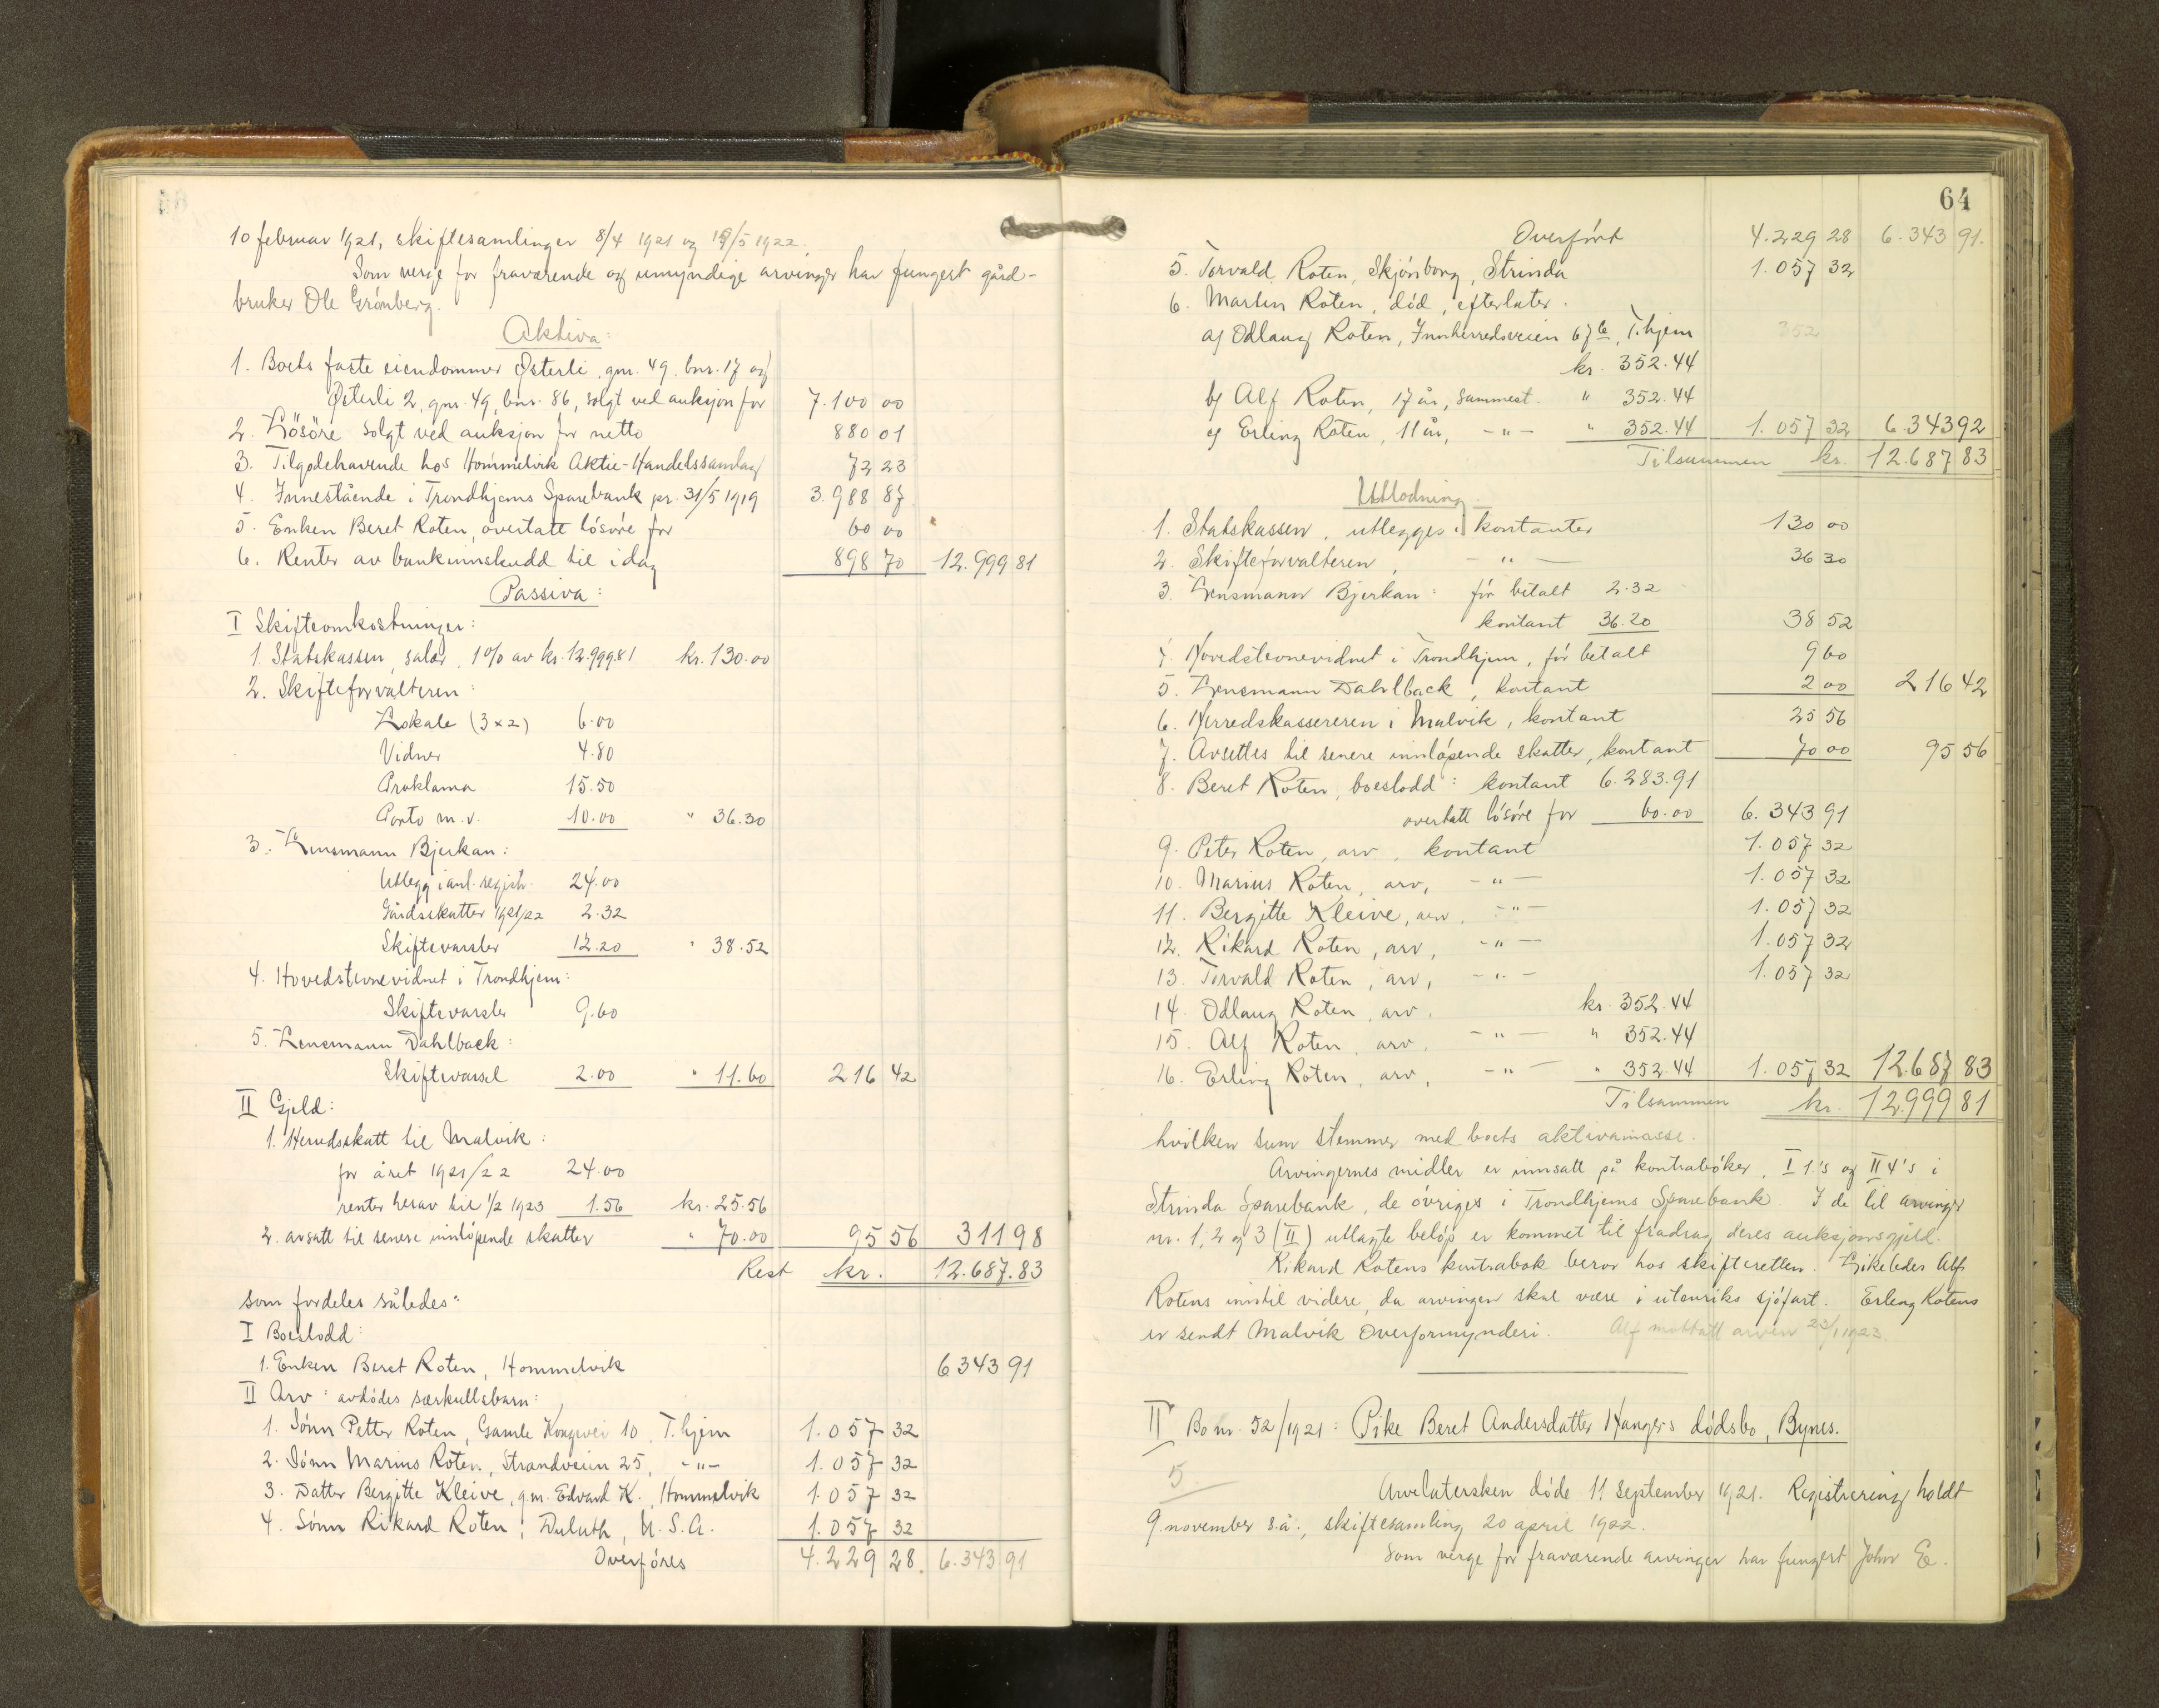 10 februar 1921, skiftesamlinger 8/4 1921 og 19/5 1922.
Som verge for fraværende og umyndige arvinger har fungert gård-
bruker Ole Grønberg.
Aktiva:
1. Boets faste eiendommer Østerli, gnr. 49. bnr. 17 og
Østerli 2, gnr. 49, bnr. 86, solgt ved auksjon for 7.100 00
2. Løsøre solgt ved auksjon for netto 880 01
3. Tilgodehavende hos Hommelvik Aktie-Handelssamlag 72 23
4. Innestående i Trondhjems Sparebank pr. 31/5 1919 3.988 87
5. Enken Beret Roten, overtatt løsøre for 60 00
6. Renter av bankinnskudd til idag 898 70 12.999 81
Passiva:
I Skifteomkostninger:
1. Statskassen, salær, 1% av kr. 12.999.81 kr. 130.00
2. Skifteforvalteren:
Lokale (3x2) 6.00
Vidner 4.80
Proklama 15.50
Porto m.v. 10.00 " 36.30
3. Lensmann Bjerkan:
Utlegg i anl. registr. 24.00
Gårdsskatter 1921/22 2.32
Skiftevarsler 12.20 " 38.52
4. Hovedstevnevidnet i Trondhjem:
Skiftevarsler 9.60
5. Lensmann Dahlback:
Skiftevarsel 2.00 " 11.60 216 42
II Gjeld:
1. Herredsskatt til Malvik:
for året 1921/22 24.00
renter herav til 1/2 1923 1.56 kr. 25.56
2. avsatt til senere innløpende skatter " 70.00 95 56 311 98
Rest kr. 12.687.83
som fordeles således:
I Boeslodd:
1. Enken Beret Roten, Hommelvik 6343 91
II Arv: avdødes særkullsbarn:
1. Sønn Petter Roten, Gamle Kongevei 10, T.hjem 1.057 32
2. Sønn Marius Roten, Strandveien 25, -"- 1.057 32
3. Datter Bergitte Kleive, g.m. Edvard K., Hommelvik 1.057 32
4. Sønn Rikard Roten, Duluth, U.S.A. 1.057 32
Overføres 4.229 28. 6.343 91
64
Overført 4.229 28 6.343 91.
5. Torvald Roten, Skjønborg, Strinda 1.057 32
6. Martin Roten, død, efterlater.
a) Odlaug Roten, Innherredsveien 67b, T.hjem 352
kr. 352.44
b) Alf Roten, 17 år, sammest. " 352.44
c) Erling Roten, 11 år, -"- " 352.44 1.057 32 6.343 92
Tilsammen kr. 12.687 83
Utlodning.
1. Statskassen, utlegges i kontanter 130 00
2. Skifteforvalteren, -"- 36 30
3. Lensmann Bjerkan: før betalt 2.32
kontant 36.20 38 52
4. Hovedstevnevidnet i Trondhjem, før betalt 9 60
5. Lensmann Dahlback, kontant 2 00 216 42
6. Herredskassereren i Malvik, kontant 25 56
7. Avsettes til senere innløpende skatter, kontant 70 00 95 56
8. Beret Roten, boeslodd: kontant 6.283.91
overtatt løsøre for 60.00 6.343 91
9. Peter Roten, arv, kontant 1.057 32
10. Marius Roten, arv, -"- 1.057 32
11. Bergitte Kleive, arv, -"- 1.057 32
12. Rikard Roten, arv, -"- 1.057 32
13. Torvald Roten, arv, -"- 1.057 32
14. Odlaug Roten, arv, kr. 352.44
15. Alf Roten, arv, -"- " 352.44
16. Erling Roten, arv, -"- " 352.44 1.057 32 12.687 83
Tilsammen kr. 12.999 81
hvilken sum stemmer med boets aktivamasse.
Arvingernes midler er innsatt på kontrabøker, I 1's og II 4's i
Strinda Sparebank, de øvriges i Trondhjems Sparebank. I de til arvinger
nr. 1, 2 og 3 (II) utlagte beløp er kommet til fradrag deres auksjonsgjeld.
Rikard Rotens kontrabok beror hos skifteretten. Likeledes Alf
Rotens inntil videre, da arvingen skal være i utenriks sjøfart. Erling Rotens
er sendt Malvik Overformynderi. Alf mottatt arven 23/1 1923.
II Bo nr. 52/1921: Pike Beret Andersdatter Hangers dødsbo, Bynes.
5
Arvelatersken døde 11 september 1921. Registrering holdt
9. november s.å., skiftesamling 20 april 1922.
Som verge for fraværende arvinger har fungert John E.